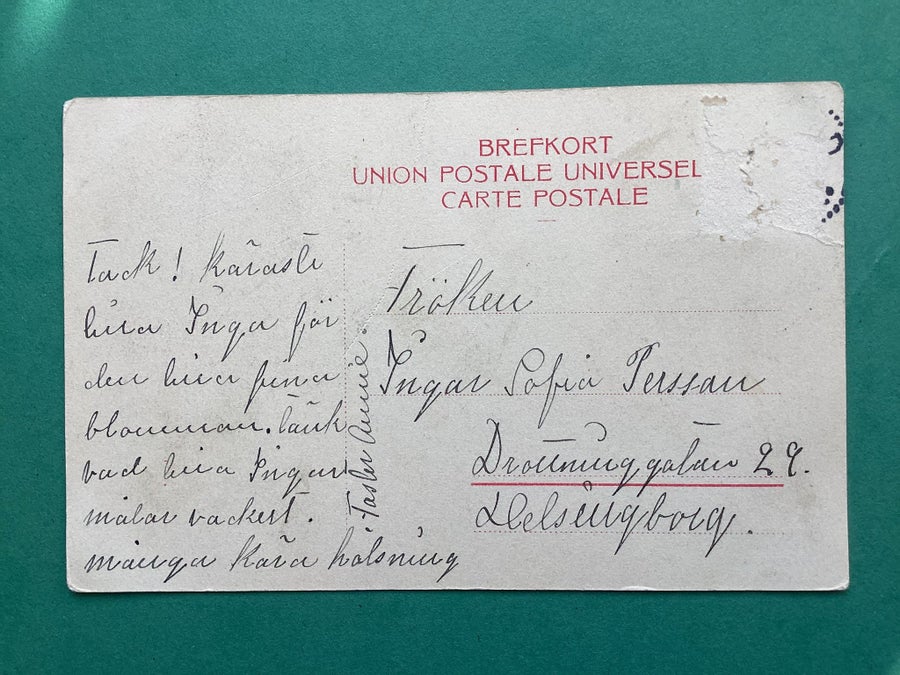 BREFKORT
UNION POSTALE UNIVERSEL
CARTE POSTALE
Tack! käraste
lilla Inga för
den lilla fina
blomman. tänk
vad lilla Inga
målar vackert.
många kära hälsning
Faster Annie.
Fröken
Inga Sofia Persson
Drottninggatan 29.
Helsingborg.